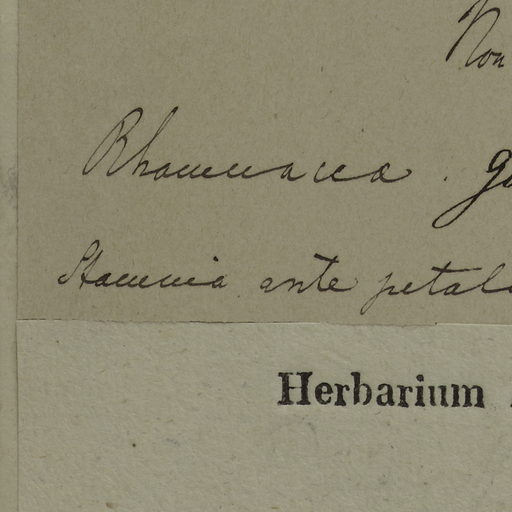 Non
Rhamnacea . g
Stamina ante petal
Herbarium